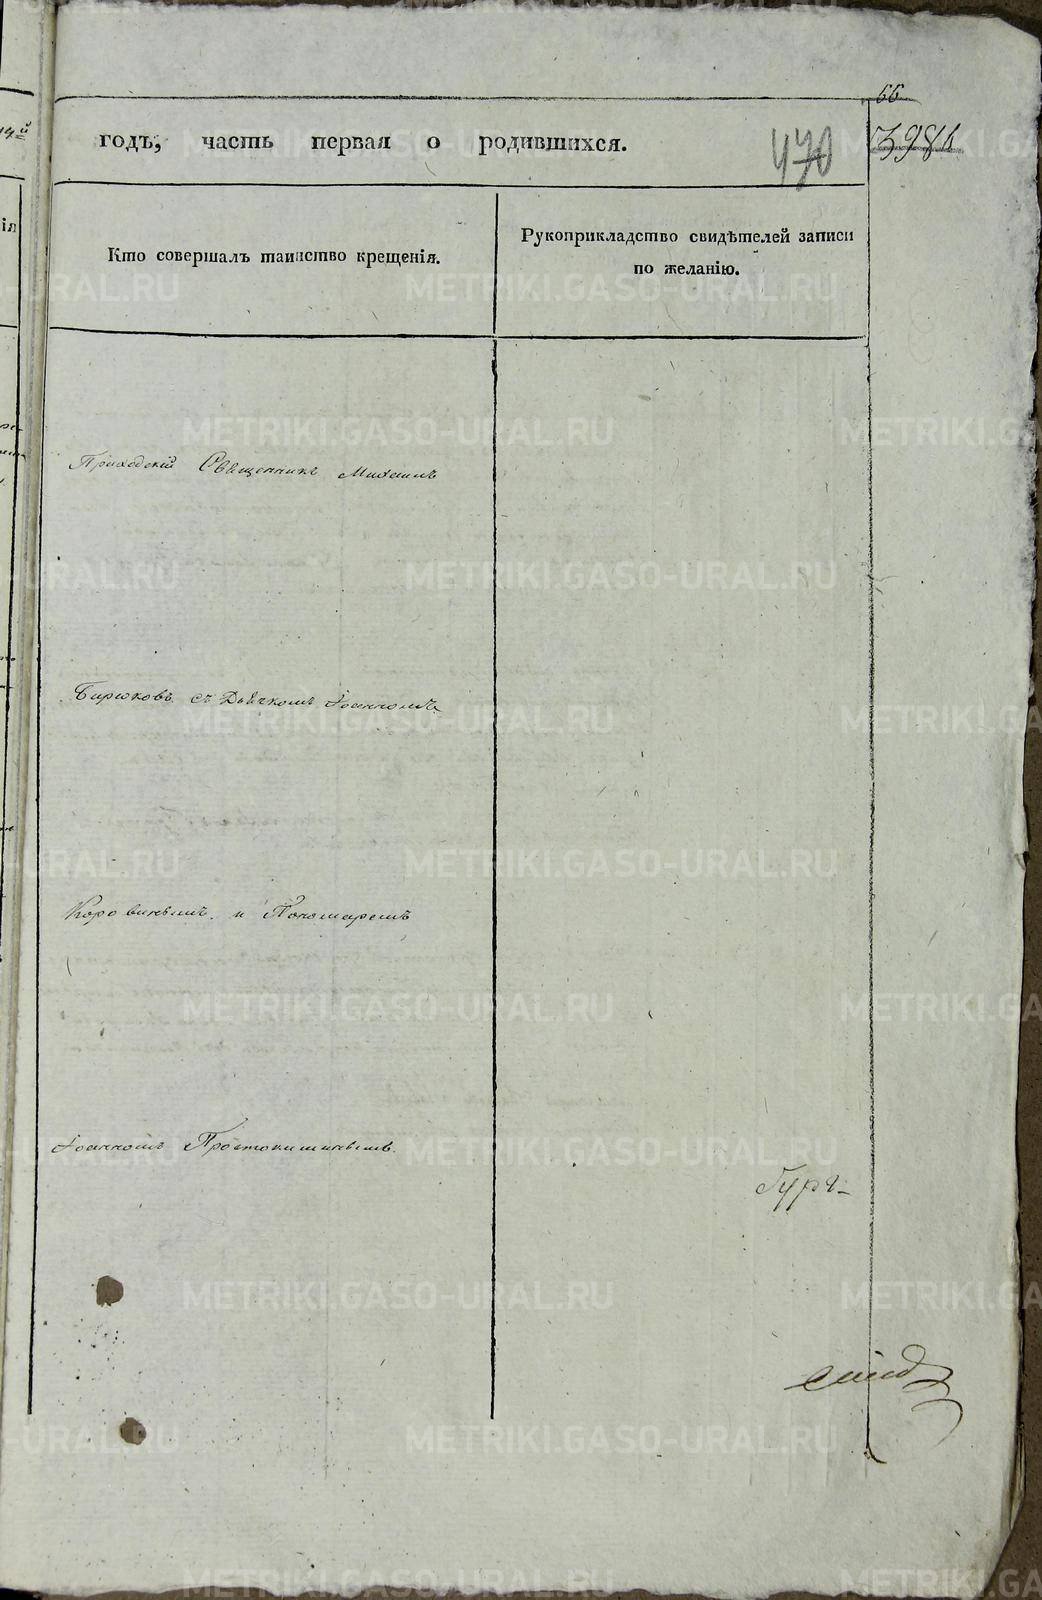 66
годъ, часть первая о родившихся.
470
Кто совершалъ таинство крещенія.
Рукоприкладство свидѣтелей записи
по желанію.
Приходскій Священникъ Михаилъ
Бирюковъ съ Дьячкомъ Іоанномъ
Коровинымъ и Пономаремъ
Іоанномъ Простокишинымъ.
METRIKI.GASO-URAL.RU